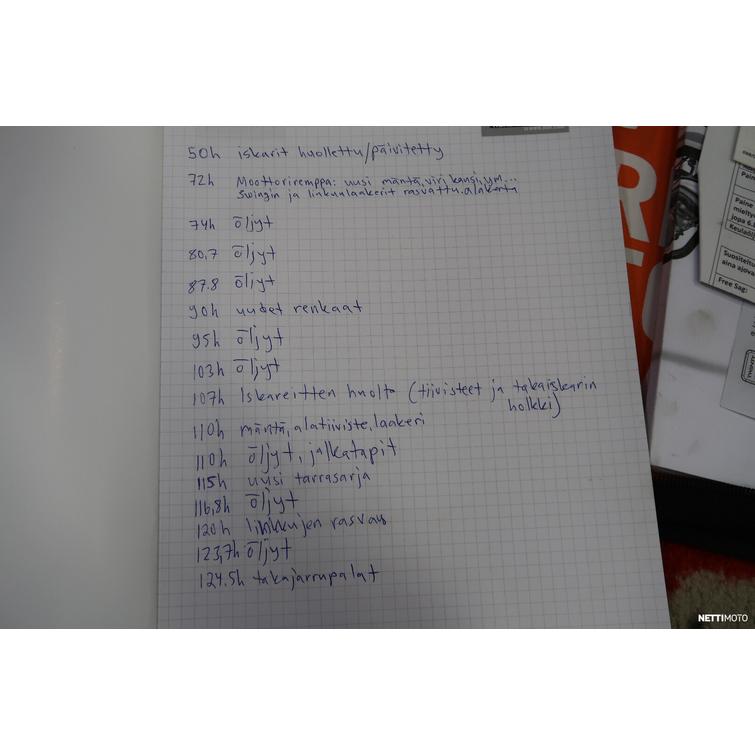 50h iskarit huollettu/päivitetty
72h Moottoriremppa: uusi mäntä, viri kansi, ym...
Swingin ja linkunlaakerit rasvattu.
74h öljyt
80,7 öljyt
87.8 öljyt
90h uudet renkaat
95h öljyt
103h öljyt
107h Iskareitten huolto (tiivisteet ja takaiskarin
holkki)
110h mäntä, alatiiviste, laakeri
110h öljyt, jalkatapit
115h uusi tarrasarja
116,8h öljyt
120h linkkujen rasvaus
123,7h öljyt
124.5h takajarrupalat
Paine
mielty
jopa 6.
Keulaöl
Suositeltu
aina ajova
Free Sag:
NETTIMOTO